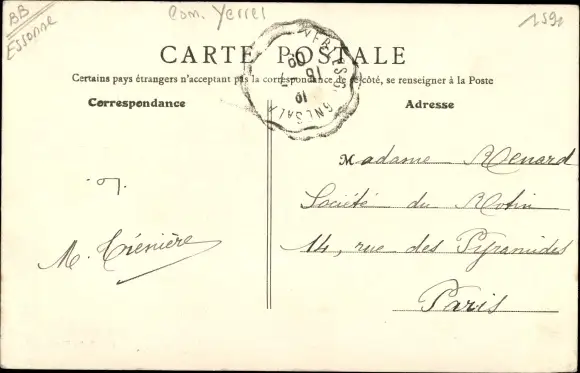 BB
Essonne
Com. Yerrel
CARTE POSTALE
Certains pays étrangers n'acceptant pas la correspondance de ce côté, se renseigner à la Poste
Correspondance
Adresse
Madame Menard
Société du
14, rue des Pyramides
Paris